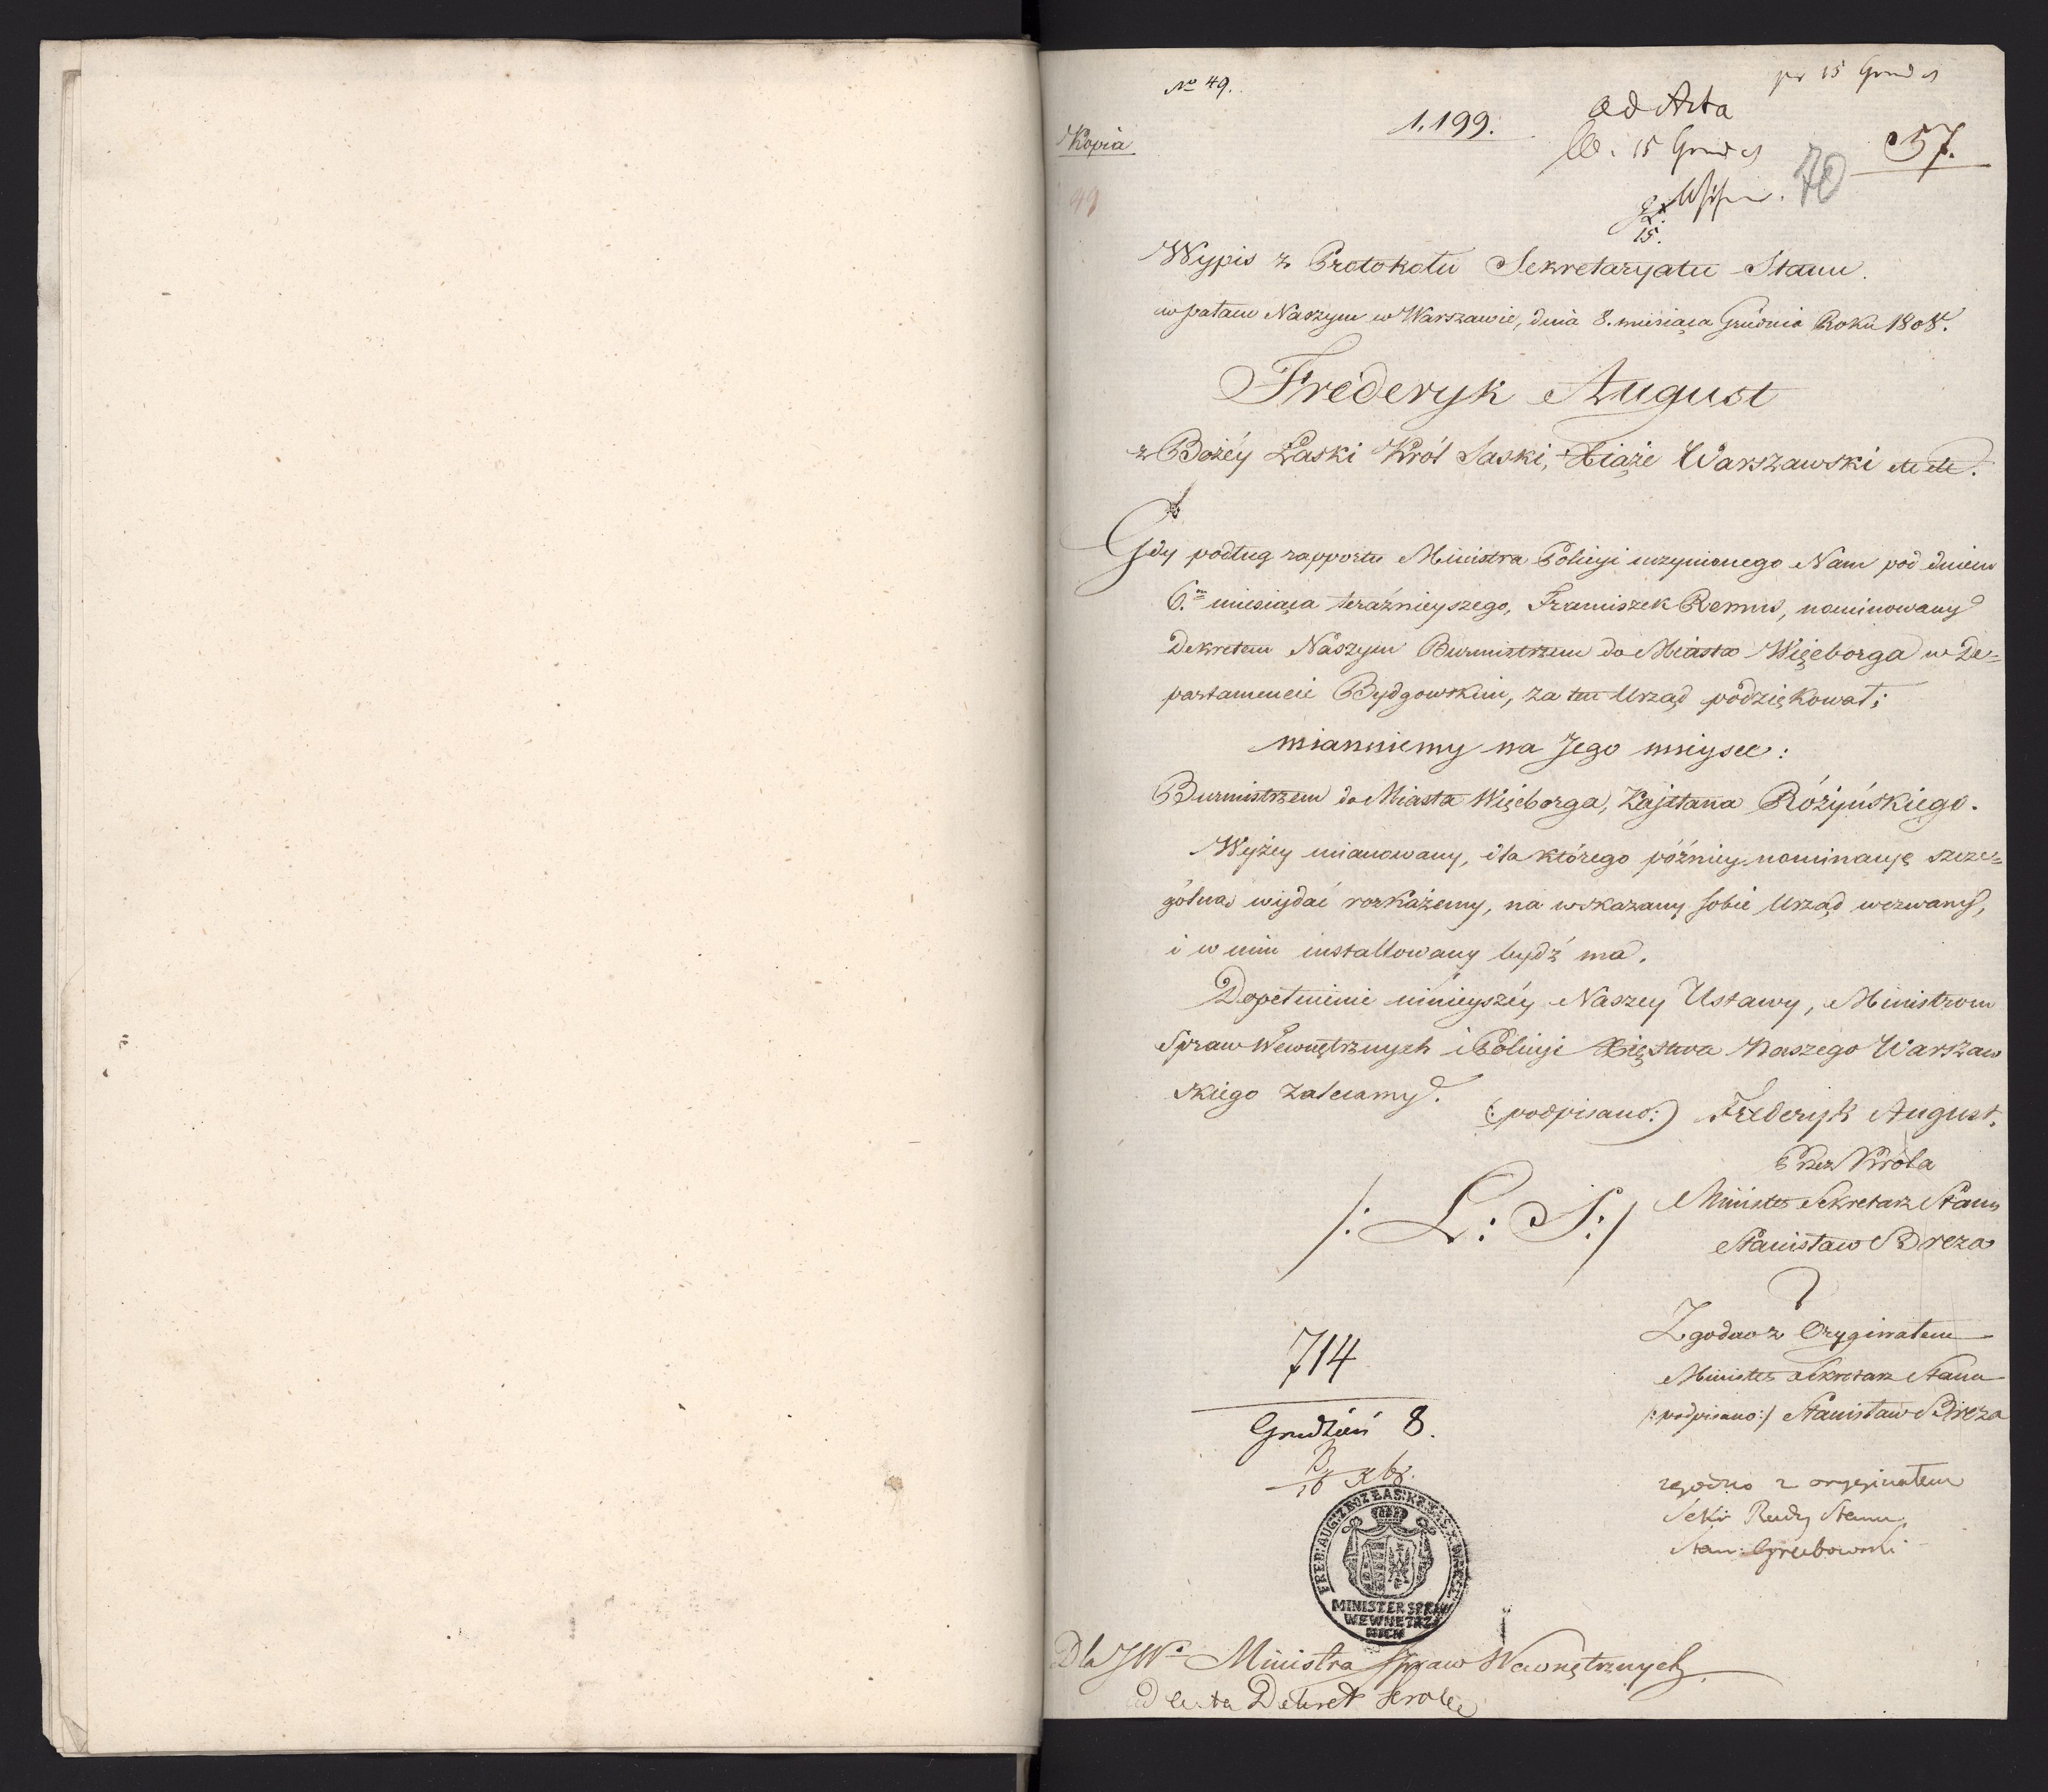 No 49.
pr 15 Grud
Kopia
1,199.
ad Acta
15 Grud
57.
70
49
15.
Wypis z Protokołu Sekretaryatu Stanu.
w pałacu Naszym w Warszawie, dnia 8. miesiąca Grudnia Roku 1808.
Fréderyk August
z Bożéy Łaski Król Saski, Xiąże Warszawski etc etc.
Gdy podług rapportu Ministra Policyi uczynionego Nam pod dniem
6.m miesiąca teraźnieyszego, Franciszek Remus, nominowany
Dekretem Naszym Burmistrzem do Miasta Więcborga w De=
partamencie Bydgowskim, za ten Urząd podziękował;
mianuiemy na Jego mieysce:
Burmistrzem do Miasta Więcborga, Kajetana Różyńskiego.
Wyżey mianowany, dla którego późniey nominacyę szcze=
gólną wydać rozkażemy, na wskazany sobie Urząd wezwany,
i w nim installowany bydź ma.
Dopełnienie ninieyszéy Naszey Ustawy, Ministrom
Spraw Wewnętrznych i Policyi Xięstwa Naszego Warszaw
skiego zalecamy.
(:podpisano:) Fréderyk August.
Przez Króla
/: L: S:/ Minister Sekretarz Stanu
Stanisław Breza
Zgodno z Oryginałem
714
Minister Sekretarz Stanu
/:podpisano:/ Stanisław Breza
Grudzień 8.
16 Xbr.
zgodno z oryginałem
Sekr Rady Stanu
Stan: Grabowski
FRED: AUG: Z BOZ ŁAS: KR: SAS: X WARSZ:
MINISTER SPRAW
WEWNETRZ
NYCH
Dla JWo Ministra Spraw Wewnętrznych
ad acta Dekret Krole